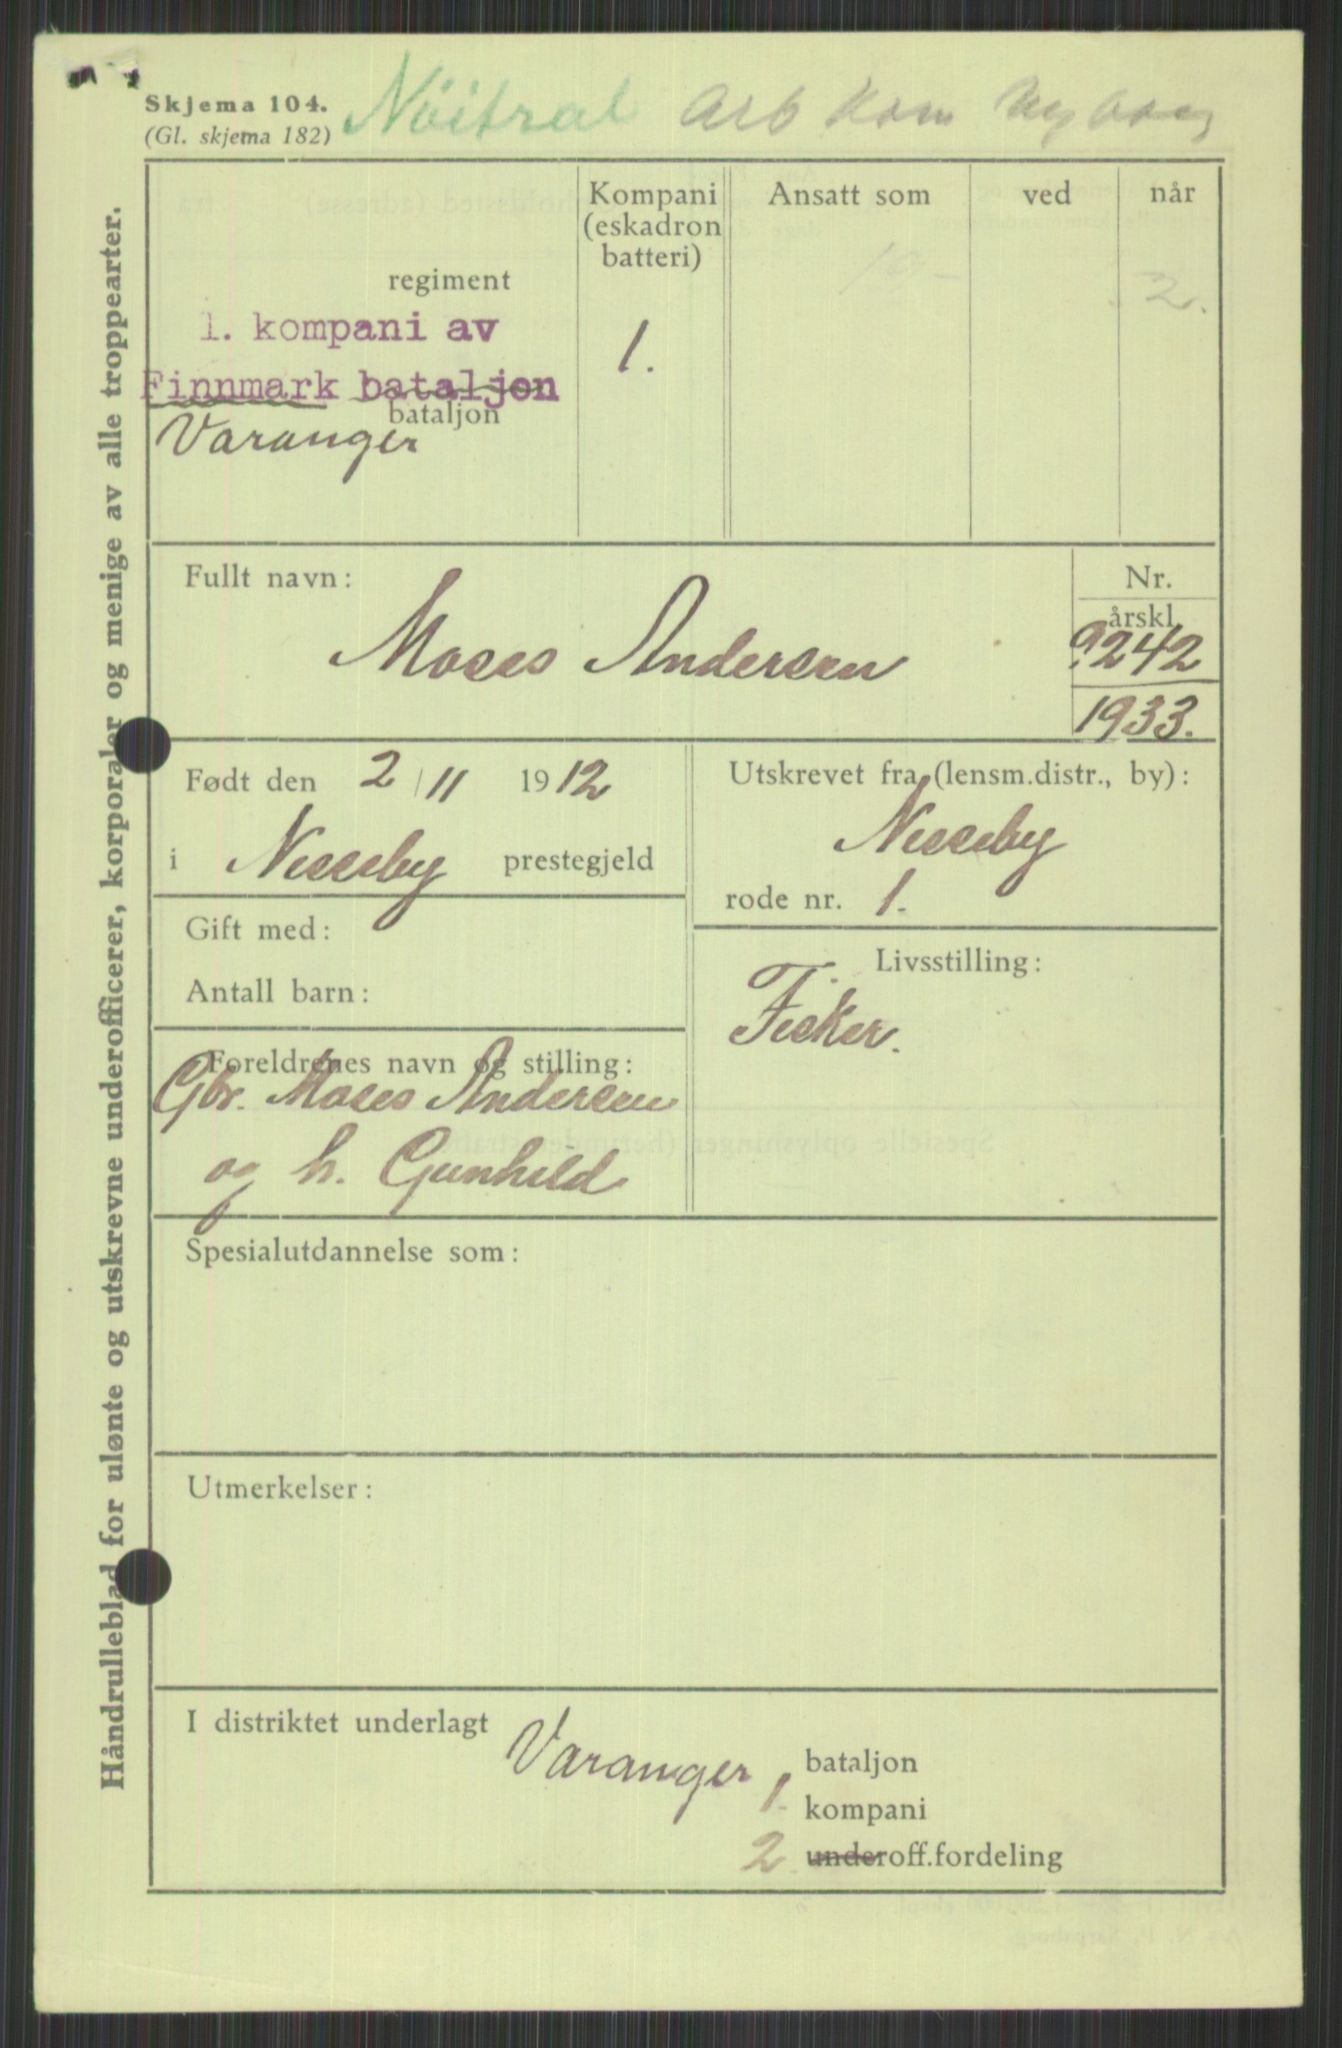 Skjema 104.
(Gl. skjema 182)
Nöitral Arb Kom Nyborg
Håndrulleblad for ulønte og utskrevne underofficerer, korporaler og menige av alle troppearter.
regiment
1. kompani av
Finnmark bataljon
bataljon
Varanger
Kompani
(eskadron
batteri)
1.
Ansatt som
ved
når
2.
Fullt navn:
Moses Andersen
Nr.
årskl.
242
1933.
Født den 2/11 1912
i Nesseby prestegjeld
Utskrevet fra (lensm.distr., by):
Nesseby
rode nr. 1.
Gift med:
Antall barn:
Livsstilling:
Fisker.
Foreldrenes navn og stilling:
Gbr. Moses Andersen
og h. Gunhild
Spesialutdannelse som:
Utmerkelser:
I distriktet underlagt
Varanger bataljon
1. kompani
2 underoff.fordeling